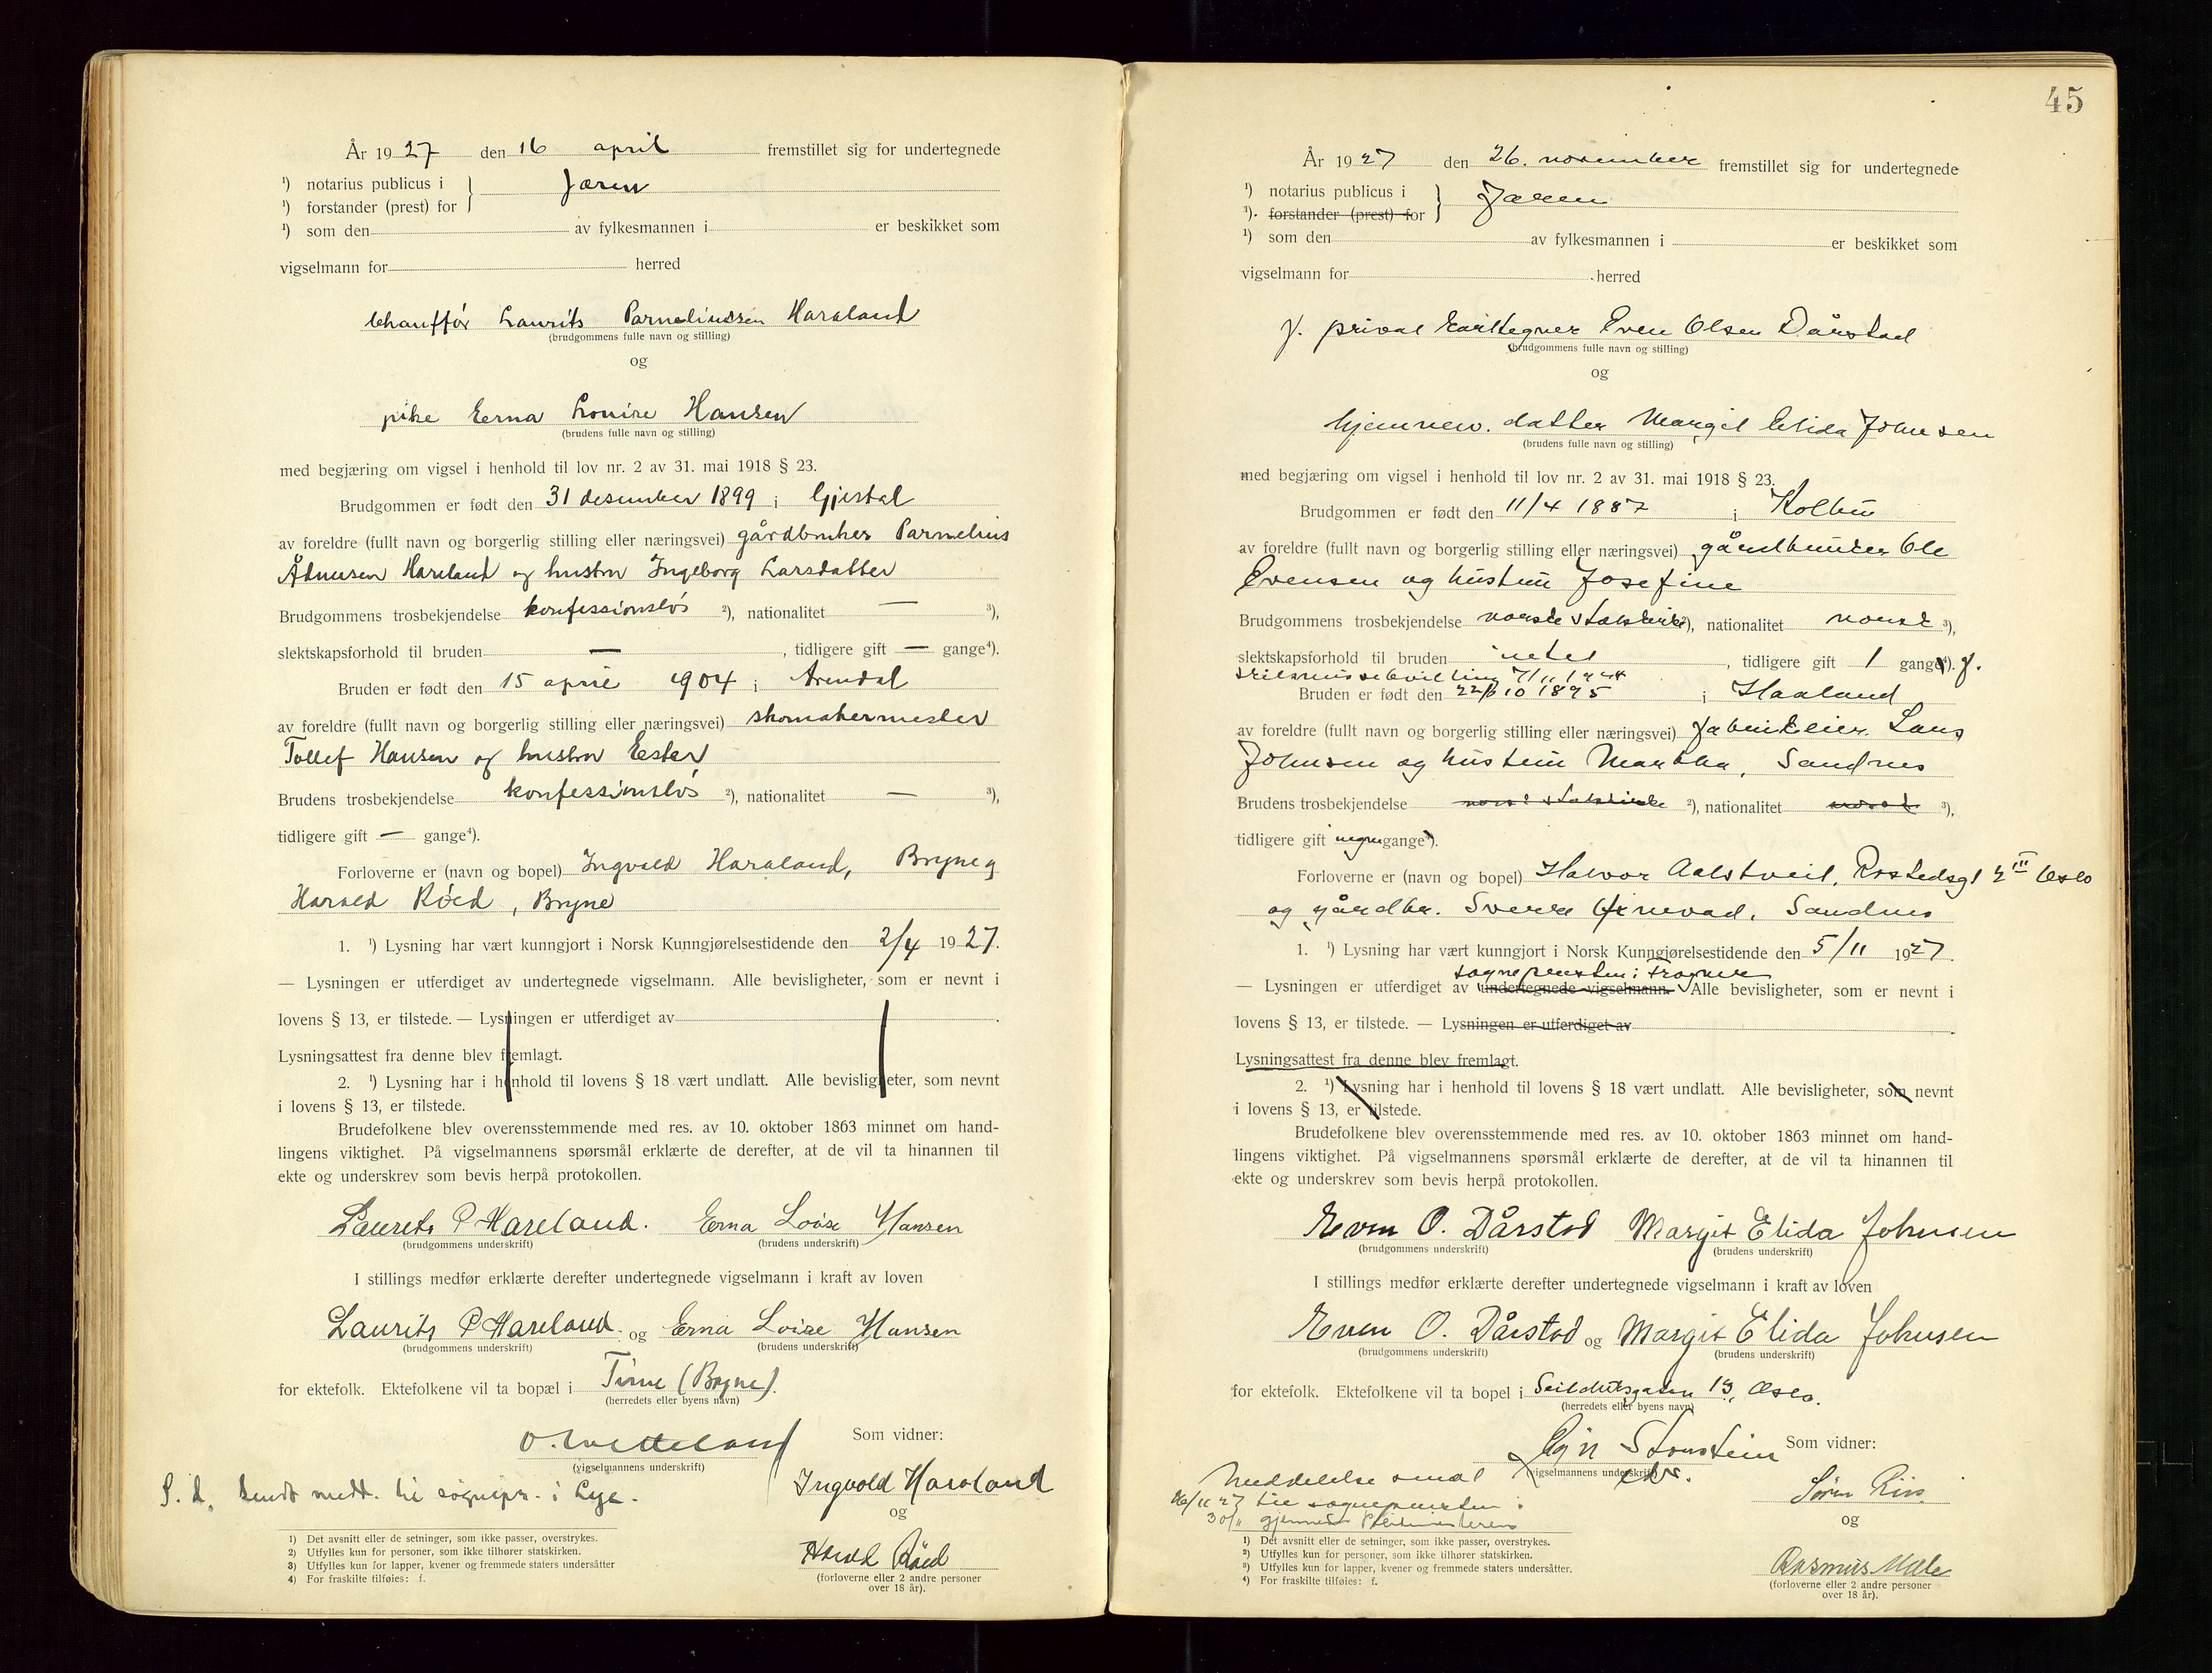 År 1927 den 16 april fremstillet sig for undertegnede
¹) notarius publicus i } Jæren
¹) forstander (prest) for
¹) som den av fylkesmannen i er beskikket som
vigselmann for herred
chauffør Laurits Parneliussen Haraland
(brudgommens fulle navn og stilling)
og
pike Erna Louise Hansen
(brudens fulle navn og stilling)
med begjæring om vigsel i henhold til lov nr. 2 av 31. mai 1918 § 23.
Brudgommen er født den 31 desember 1899 i Gjestal
av foreldre (fullt navn og borgerlig stilling eller næringsvei) gårdbruker Parnelius
Ådnesen Hareland og hustru Ingeborg Larsdatter
Brudgommens trosbekjendelse konfessionsløs ²), nationalitet — ³),
slektskapsforhold til bruden — , tidligere gift — gange⁴).
Bruden er født den 15 april 1904 i Arendal
av foreldre (fullt navn og borgerlig stilling eller næringsvei) skomakermester
Tollef Hansen og hustru Ester
Brudens trosbekjendelse konfessionsløs ²), nationalitet — ³),
tidligere gift — gange⁴).
Forloverne er (navn og bopel) Ingvald Haraland, Bryne og
Harald Røed, Bryne
1. ¹) Lysning har vært kunngjort i Norsk Kunngjørelsestidende den 2/4 1927.
— Lysningen er utferdiget av undertegnede vigselmann. Alle bevisligheter, som er nevnt i
lovens § 13, er tilstede. — Lysningen er utferdiget av
Lysningsattest fra denne blev fremlagt.
2. ¹) Lysning har i henhold til lovens § 18 vært undlatt. Alle bevisligheter, som nevnt
i lovens § 13, er tilstede.
Brudefolkene blev overensstemmende med res. av 10. oktober 1863 minnet om hand-
lingens viktighet. På vigselmannens spørsmål erklærte de derefter, at de vil ta hinannen til
ekte og underskrev som bevis herpå protokollen.
Laurits P Hareland. Erna Loise Hansen
(brudgommens underskrift) (brudens underskrift)
I stillings medfør erklærte derefter undertegnede vigselmann i kraft av loven
Laurits P Hareland. og Erna Loise Hansen
(brudgommens underskrift) (brudens underskrift)
for ektefolk. Ektefolkene vil ta bopæl i Time (Bryne).
(herredets eller byens navn)
Som vidner:
(vigselmannens underskrift)
S. d. sendt medd. til sognepr. i Lye.
Ingvald Haraland
og
Harald Røed
(forloverne eller 2 andre personer
over 18 år).
1) Det avsnitt eller de setninger, som ikke passer, overstrykes.
2) Utfylles kun for personer, som ikke tilhører statskirken.
3) Utfylles kun for lapper, kvener og fremmede staters undersåtter
4) For fraskilte tilføies: f.
45
År 1927 den 26. november fremstillet sig for undertegnede
¹) notarius publicus i } Jæren
¹) forstander (prest) for
¹) som den av fylkesmannen i er beskikket som
vigselmann for herred
f. privat karttegner Even Olsen Dårstad
(brudgommens fulle navn og stilling)
og
hjemmev. datter Margit Elida Johnsen
(brudens fulle navn og stilling)
med begjæring om vigsel i henhold til lov nr. 2 av 31. mai 1918 § 23.
Brudgommen er født den 11/4 1887 i Kolbu
av foreldre (fullt navn og borgerlig stilling eller næringsvei) gårdbruker Ole
Evensen og hustru Josefine
Brudgommens trosbekjendelse norske statskirke ²), nationalitet norsk ³),
slektskapsforhold til bruden intet , tidligere gift 1 gange⁴). f.
skilsmissebevilling 7/11 1924
Bruden er født den 22/10 1895 i Haaland
av foreldre (fullt navn og borgerlig stilling eller næringsvei) fabrikkeier Lars
Johnsen og hustru Martha, Sandnes
Brudens trosbekjendelse norske statskirke ²), nationalitet norsk ³),
tidligere gift ingen gange⁴).
Forloverne er (navn og bopel) Halvor Aalstveit, Rostedsgt 2 III Oslo
og gårdbr. Sverre Ørnevad, Sandnes
1. ¹) Lysning har vært kunngjort i Norsk Kunngjørelsestidende den 5/11 1927.
sognepresten i Frogner
— Lysningen er utferdiget av undertegnede vigselmann. Alle bevisligheter, som er nevnt i
lovens § 13, er tilstede. — Lysningen er utferdiget av
Lysningsattest fra denne blev fremlagt.
2. ¹) Lysning har i henhold til lovens § 18 vært undlatt. Alle bevisligheter, som nevnt
i lovens § 13, er tilstede.
Brudefolkene blev overensstemmende med res. av 10. oktober 1863 minnet om hand-
lingens viktighet. På vigselmannens spørsmål erklærte de derefter, at de vil ta hinannen til
ekte og underskrev som bevis herpå protokollen.
Even O. Dårstad Margit Elida Johnsen
(brudgommens underskrift) (brudens underskrift)
I stillings medfør erklærte derefter undertegnede vigselmann i kraft av loven
Even O. Dårstad og Margit Elida Johnsen
(brudgommens underskrift) (brudens underskrift)
for ektefolk. Ektefolkene vil ta bopel i 13, Oslo.
(herredets eller byens navn)
Som vidner:
(vigselmannens underskrift)
Meddelelse sendt
26/11 27 til sognepresten i
30/11 gjennem
Søren Riis
og
Rasmus
(forloverne eller 2 andre personer
over 18 år).
1) Det avsnitt eller de setninger, som ikke passer, overstrykes.
2) Utfylles kun for personer, som ikke tilhører statskirken.
3) Utfylles kun for lapper, kvener og fremmede staters undersåtter.
4) For fraskilte tilføies: f.